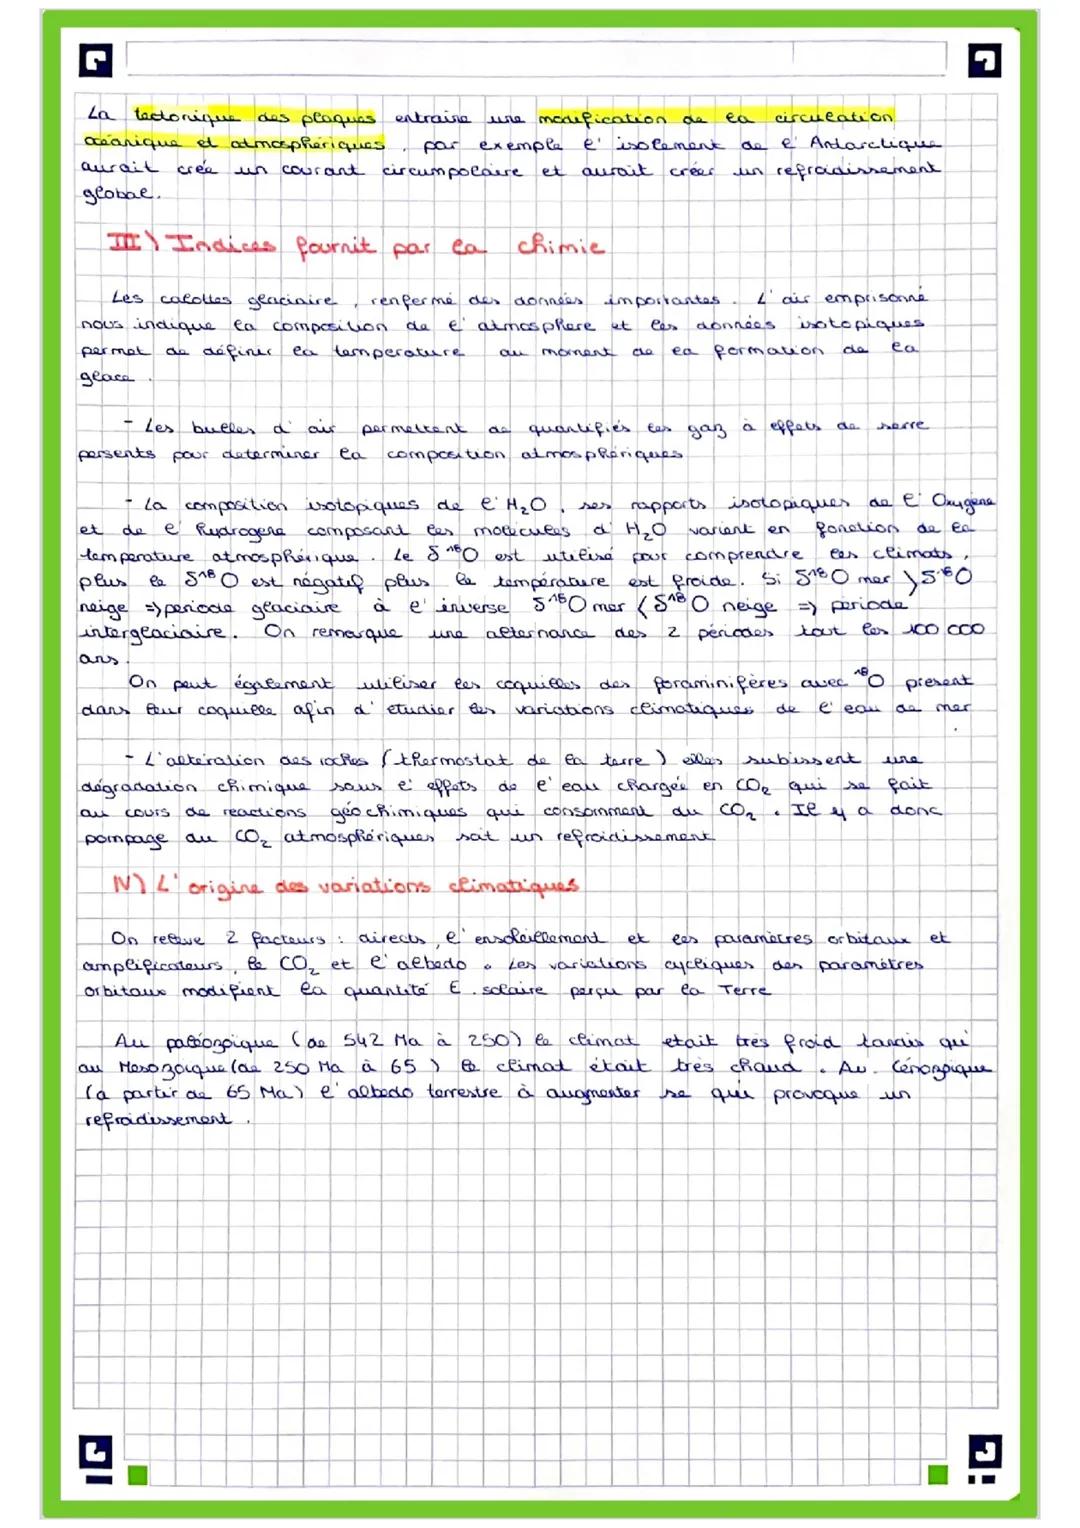 La tectonique des plaques entraine une modification de la circulation
océanique et atmosphériques, par exemple l'isolement de l'Antarctique
aurait crée un courant circumpolaire et aurait créer un refroidissement
global.
III) Indices fournit par la chimie
Les calottes glaciaire, renfermé des données importantes. L'air emprisonné
nous indique la composition de l'atmosphere et les données isotopiques
permet de définir la temperature au moment de la formation de la
glace.
- Les bulles d'air permettent de quantifiés les gaz à effets de serre
persents pour determiner la composition atmosphériques
- La composition isotopiques de l'H₂O, ses rapports isotopiques de l'Oxygene
et de l'hydrogene composant les molécules d'H₂O varient en fonction de la
temperature atmosphérique. Le δ¹⁸O est utilisé pour comprendre les climats,
plus le δ¹⁸O est négatif plus la température est froide. Si δ¹⁸O mer > δ¹⁸O
neige => periode glaciaire à l'inverse δ¹⁸O mer < δ¹⁸O neige => periode
interglaciaire. On remarque une alternance des 2 périodes tout les 100 000
ans.
On peut également utiliser les coquilles des foraminifères avec ¹⁸O present
dans leur coquille afin d'etudier les variations climatiques de l'eau de mer
- L'altération des roches (thermostat de la terre) elles subissent une
dégradation chimique sous l'effets de l'eau chargée en CO₂ qui se fait
au cours de reactions géochimiques qui consomment du CO₂. Il y a donc
pompage du CO₂ atmosphériques soit un refroidissement
IV) L'origine des variations climatiques
On releve 2 facteurs : directs, l'ensoleillement et les paramètres orbitaux et
amplificateurs, le CO₂ et l'albedo. Les variations cycliques des paramètres
orbitaux modifient la quantité E. solaire perçu par la Terre
Au paléozoïque (de 542 Ma à 250) le climat etait très froid tandis qui
au Mesozoique (de 250 Ma à 65) le climat était très chaud. Au. Cénozoïque
(a partir de 65 Ma) l'albedo terrestre à augmenter se qui provoque un
refroidissement.